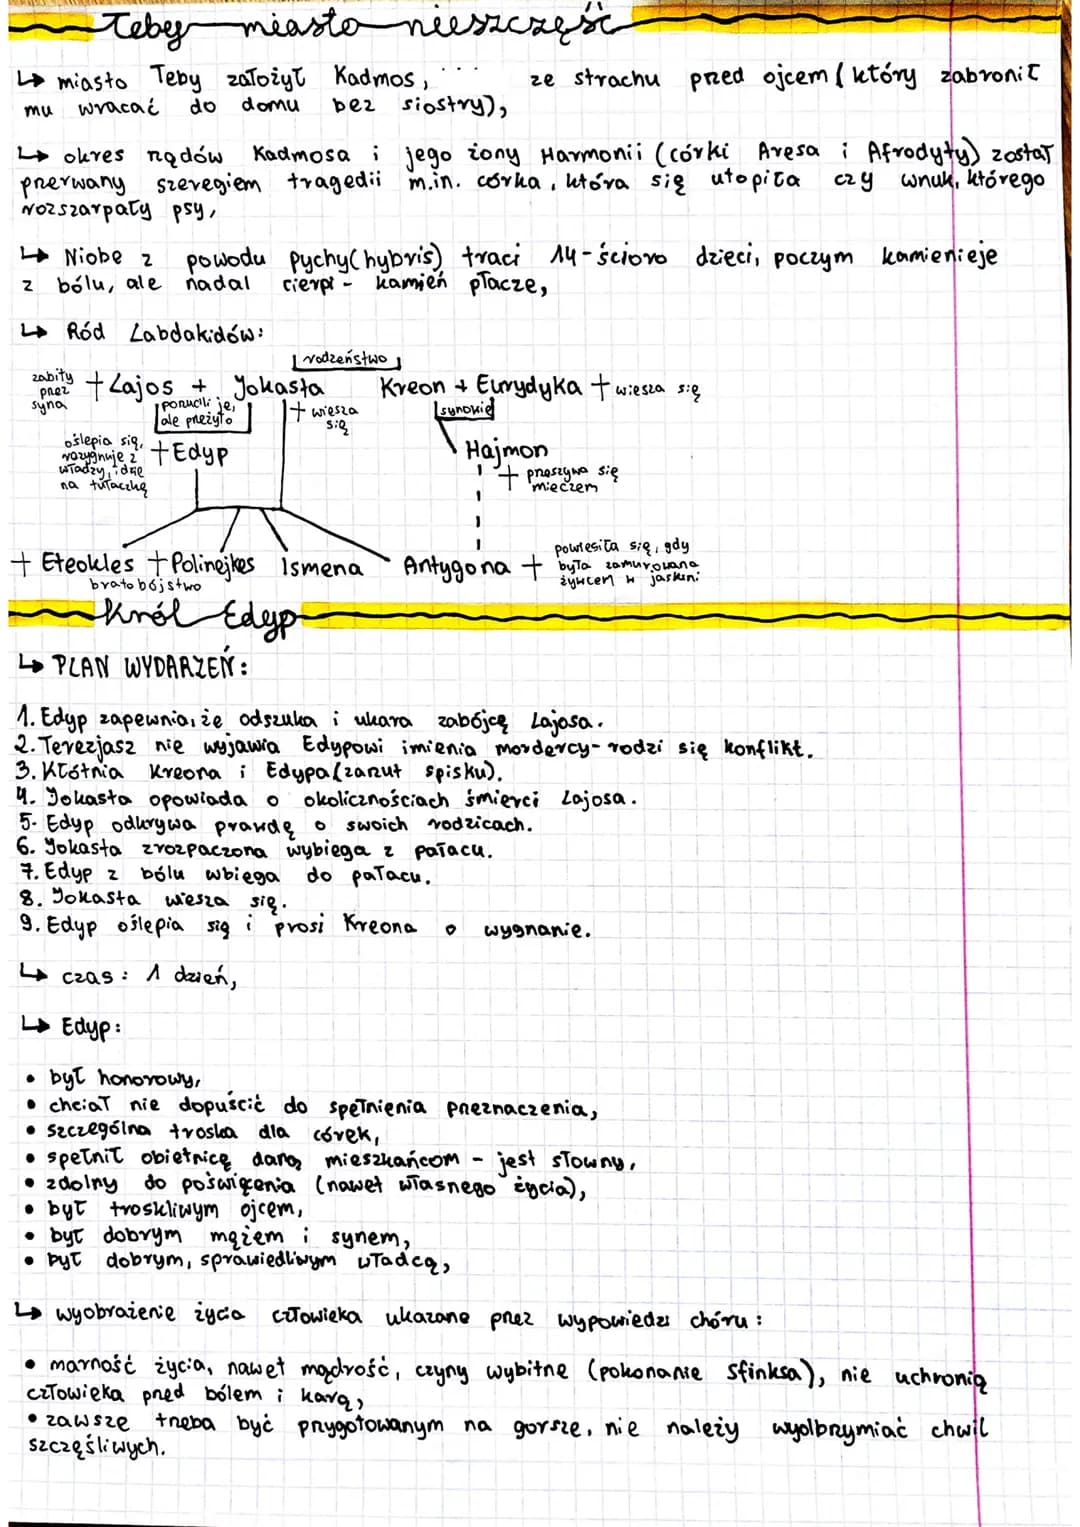 Teby miasto nieszczęść
↳ miasto Teby założył Kadmos, ... ze strachu przed ojcem (który zabronił
mu wracać do domu bez siostry),
↳ okres rządów Kadmosa i jego żony Harmonii (córki Aresa i Afrodyty) został
przerwany szeregiem tragedii m.in. córka, która się utopiła czy wnuk, którego
rozszarpały psy,
↳ Niobe z powodu pychy (hybris) traci 14-ścioro dzieci, poczym kamienieje
z bólu, ale nadal cierpi - kamień płacze,
↳ Ród Labdakidów:
rodzeństwo
zabity przez syna + Lajos + Jokasta Kreon + Eurydyka + wiesza się
porzucili je, ale przeżyło
+ wiesza się
synowie
oślepia się, rezygnuje z władzy, idzie na tułaczkę + Edyp
Hajmon
+ przeszywa się mieczem
+ Eteokles + Polinejkes Ismena Antygona + powiesiła się, gdy była zamurowana żywcem w jaskini
bratobójstwo
Król Edyp
↳ PLAN WYDARZEŃ:
1. Edyp zapewnia, że odszuka i ukara zabójcę Lajosa.
2. Terezjasz nie wyjawia Edypowi imienia mordercy - rodzi się konflikt.
3. Kłótnia Kreona i Edypa (zarzut spisku).
4. Jokasta opowiada o okolicznościach śmierci Lajosa.
5. Edyp odkrywa prawdę o swoich rodzicach.
6. Jokasta zrozpaczona wybiega z pałacu.
7. Edyp z bólu wbiega do pałacu.
8. Jokasta wiesza się.
9. Edyp oślepia się i prosi Kreona o wygnanie.
↳ czas: 1 dzień,
↳ Edyp:
• był honorowy,
• chciał nie dopuścić do spełnienia przeznaczenia,
• szczególna troska dla córek,
• spełnił obietnicę daną mieszkańcom - jest słowny,
• zdolny do poświęcenia (nawet własnego życia),
• był troskliwym ojcem,
• był dobrym mężem i synem,
• był dobrym, sprawiedliwym władcą,
↳ wyobrażenie życia człowieka ukazane przez wypowiedzi chóru:
• marność życia, nawet mądrość, czyny wybitne (pokonanie Sfinksa), nie uchronią
człowieka przed bólem i karą,
• zawsze trzeba być przygotowanym na gorsze, nie należy wyolbrzymiać chwil
szczęśliwych.